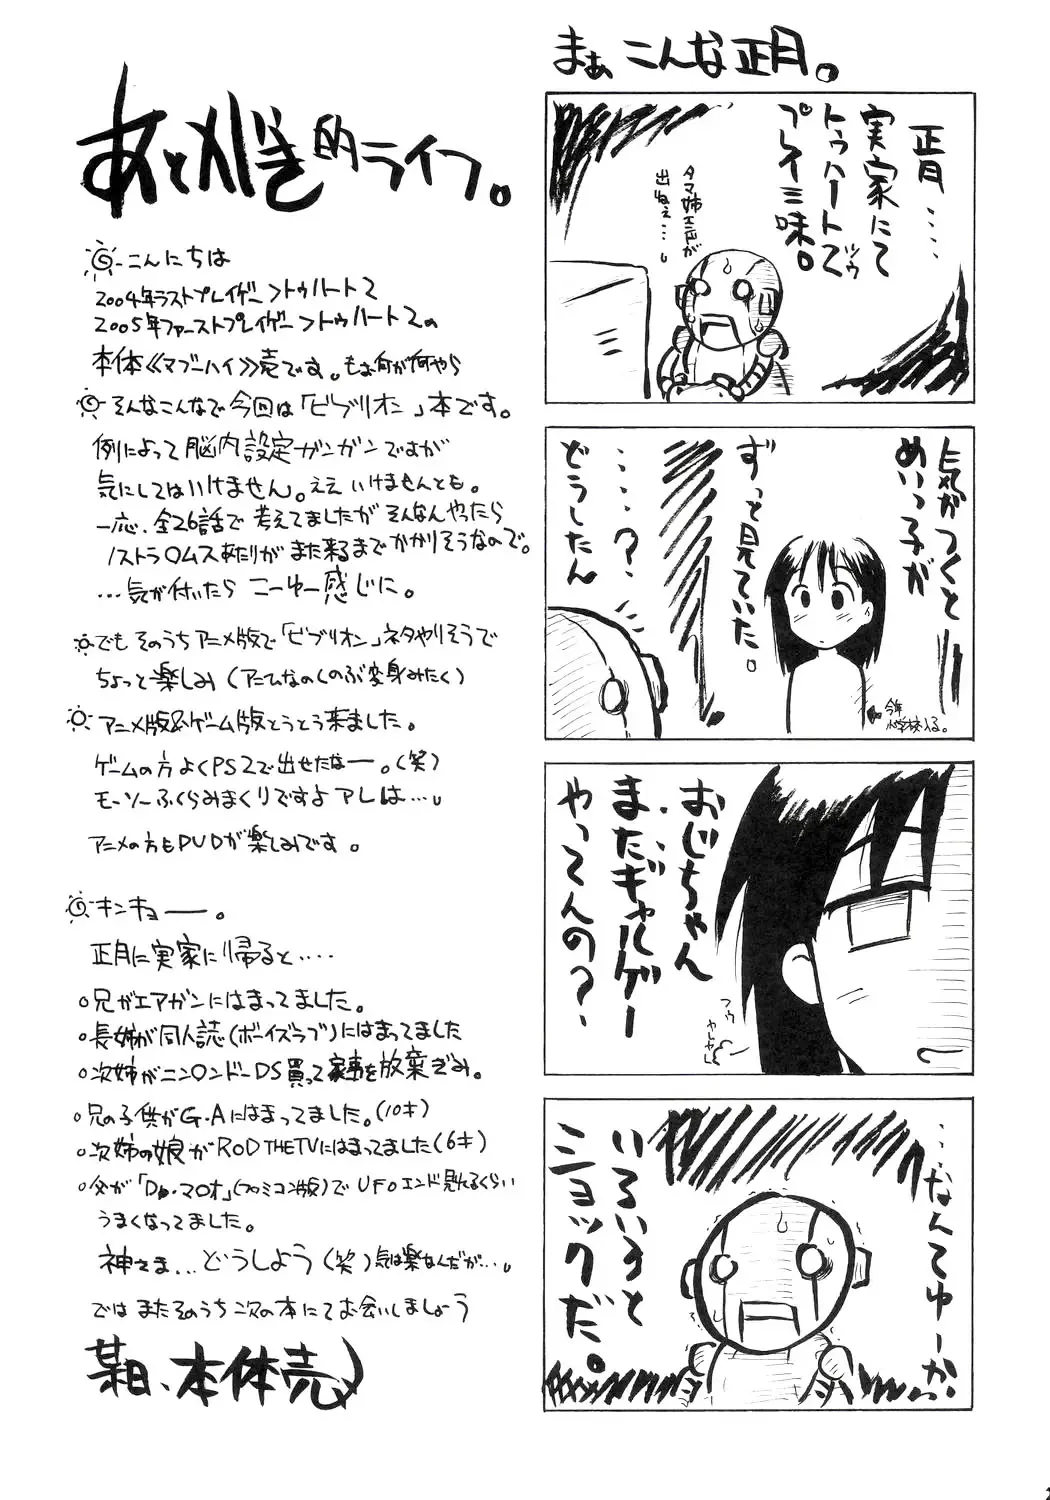 まぁ こんな正月。
正月....
実家にて
トゥハート2ツゥ
プレイ三昧。
タマ姉エロが
出ねぇ…。
気がつくと
めいっ子が
ずっと見ていた。
....?
どうしたん
今年
小学校入る。
おじちゃん
またギャルゲー
やってんの?
フゥ
ヤレヤレ
…なんてゆーか
いろいろと
ショックだ。
あとがき的ライフ。
こんにちは
2004年ラストプレイゲームトゥハート2
2005年ファーストプレイゲームトゥハート2の
本体《マブーハイ》売です。もお何が何やら
そんなこんなで今回は「ビブリオン」本です。
例によって脳内設定ガンガンですが
気にしてはいけません。ええ いけませんとも。
一応、全26話で 考えてましたが そんなんやったら
ノストラ〇ムスあたりが また来るまでかかりそうなので。
…気が付いたら こーゆー感じに。
でも そのうちアニメ版で「ビブリオン」ネタやりそうで
ちょっと楽しみ(アニムなのくのぶ変身みたく)
アニメ版&ゲーム版とうとう来ました。
ゲームの方よくPS2で出せたなー。(笑)
モーソーふくらみまくりですよアレは…。
アニメの方もDVDが楽しみです。
キンキョー。
正月に実家に帰ると....
○兄がエアガンにはまってました。
○長姉が同人誌(ボーイズラブ)にはまってました
○次姉がニン〇ンドーDS買って家事を放棄ぎみ。
○兄の子供がG・Aにはまってました。(10才)
○次姉の娘がROD THE TVにはまってました(6才)
○父が「Dr.マ〇オ」(ファミコン版)でUFOエンド見れるくらい
うまくなってました。
神さま…どうしよう(笑)気は楽なんだが…。
では またそのうち次の本にてお会いしましょう
某日、本体売